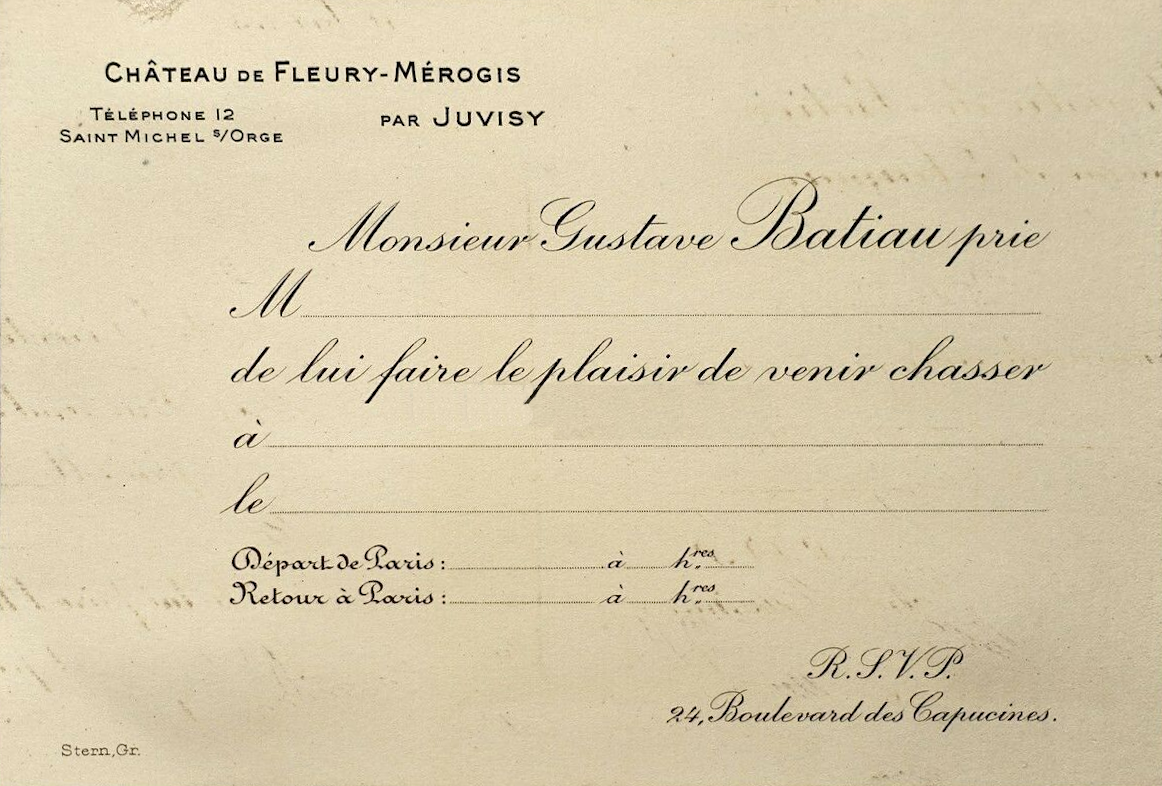 CHÂTEAU DE FLEURY-MÉROGIS
TÉLÉPHONE 12
SAINT MICHEL S/ORGE
PAR JUVISY
Monsieur Gustave Batiau prie
M
de lui faire le plaisir de venir chasser
à
le
Départ de Paris: à hres
Retour à Paris: à hres
R.S.V.P.
24, Boulevard des Capucines.
Stern, Gr.